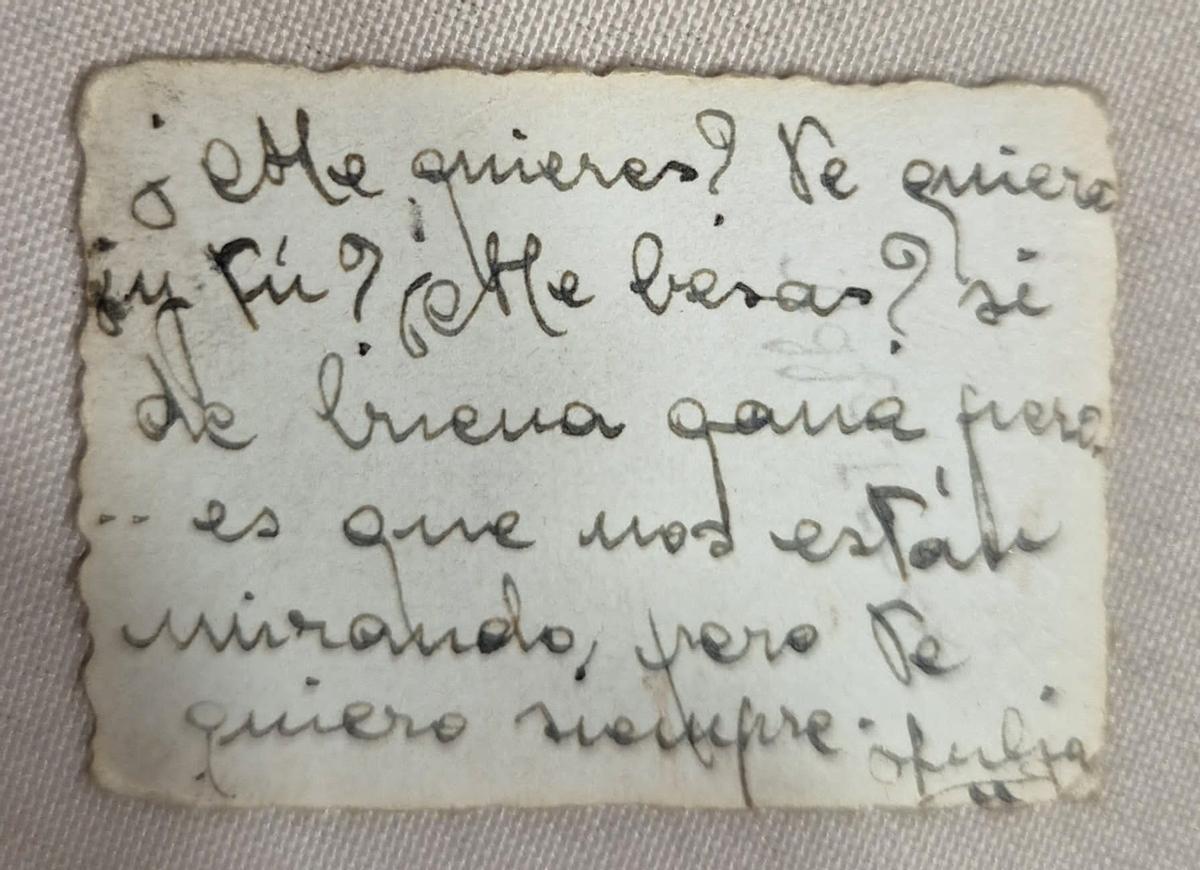 ¿Me quieres? Te quiero
¿y tú? ¿Me besas? si
de buena gana pero
-- es que nos están
mirando, pero te
quiero siempre. Julia